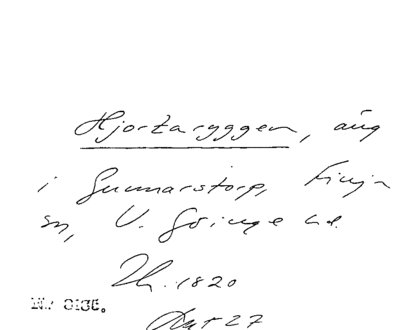 Hjortaryggen, äng
i Gunnarstorp, Finja
sn, V. Göinge hd.
Lh. 1820
Akt 27